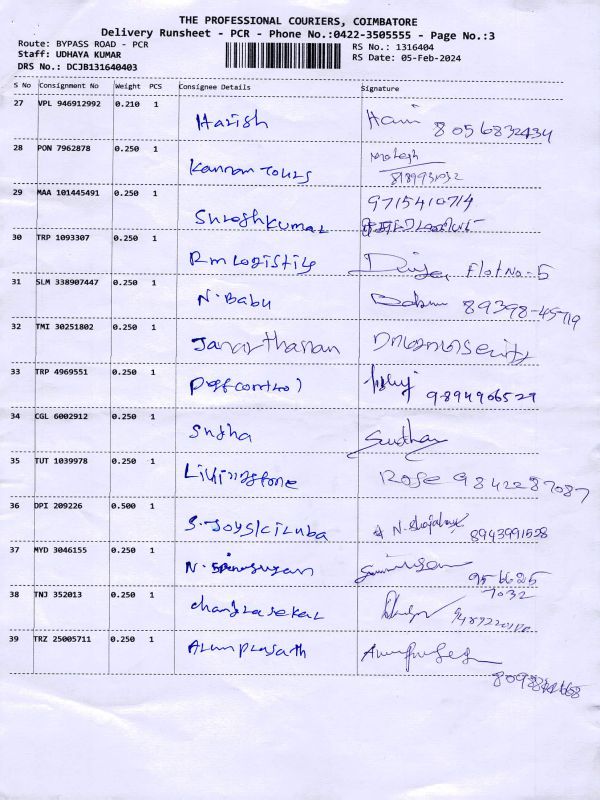 THE PROFESSIONAL COURIERS, COIMBATORE
Delivery Runsheet - PCR - Phone No.:0422-3505555 - Page No.:3
Route: BYPASS ROAD - PCR
RS No.: 1316404
Staff: UDHAYA KUMAR
RS Date: 05-Feb-2024
DRS No.: DCJB131640403
S No Consignment No Weight PCS Consignee Details Signature
27 VPL 946912992 0.210 1 Harish Hari 8056832434
28 PON 7962878 0.250 1 Kannan Tours
8189931032
29 MAA 101445491 0.250 1 9715410714
Sureshkumar
30 TRP 1093307 0.250 1 Rm Logistics Flot No:-5
31 SLM 338907447 0.250 1 N. Babu Babu 89398-45719
32 TMI 30251802 0.250 1 Janarthanan
33 TRP 4969551 0.250 1 Pest control 9894906529
34 CGL 6002912 0.250 1 Sudha Sudha
35 TUT 1039978 0.250 1 Livingstone Rose 9842287087
36 DPI 209226 0.500 1 8943991528
37 MYD 3046155 0.250 1 956625
7032
38 TNJ 352013 0.250 1 chandrasekar
39 TRZ 25005711 0.250 1 Arunprasath